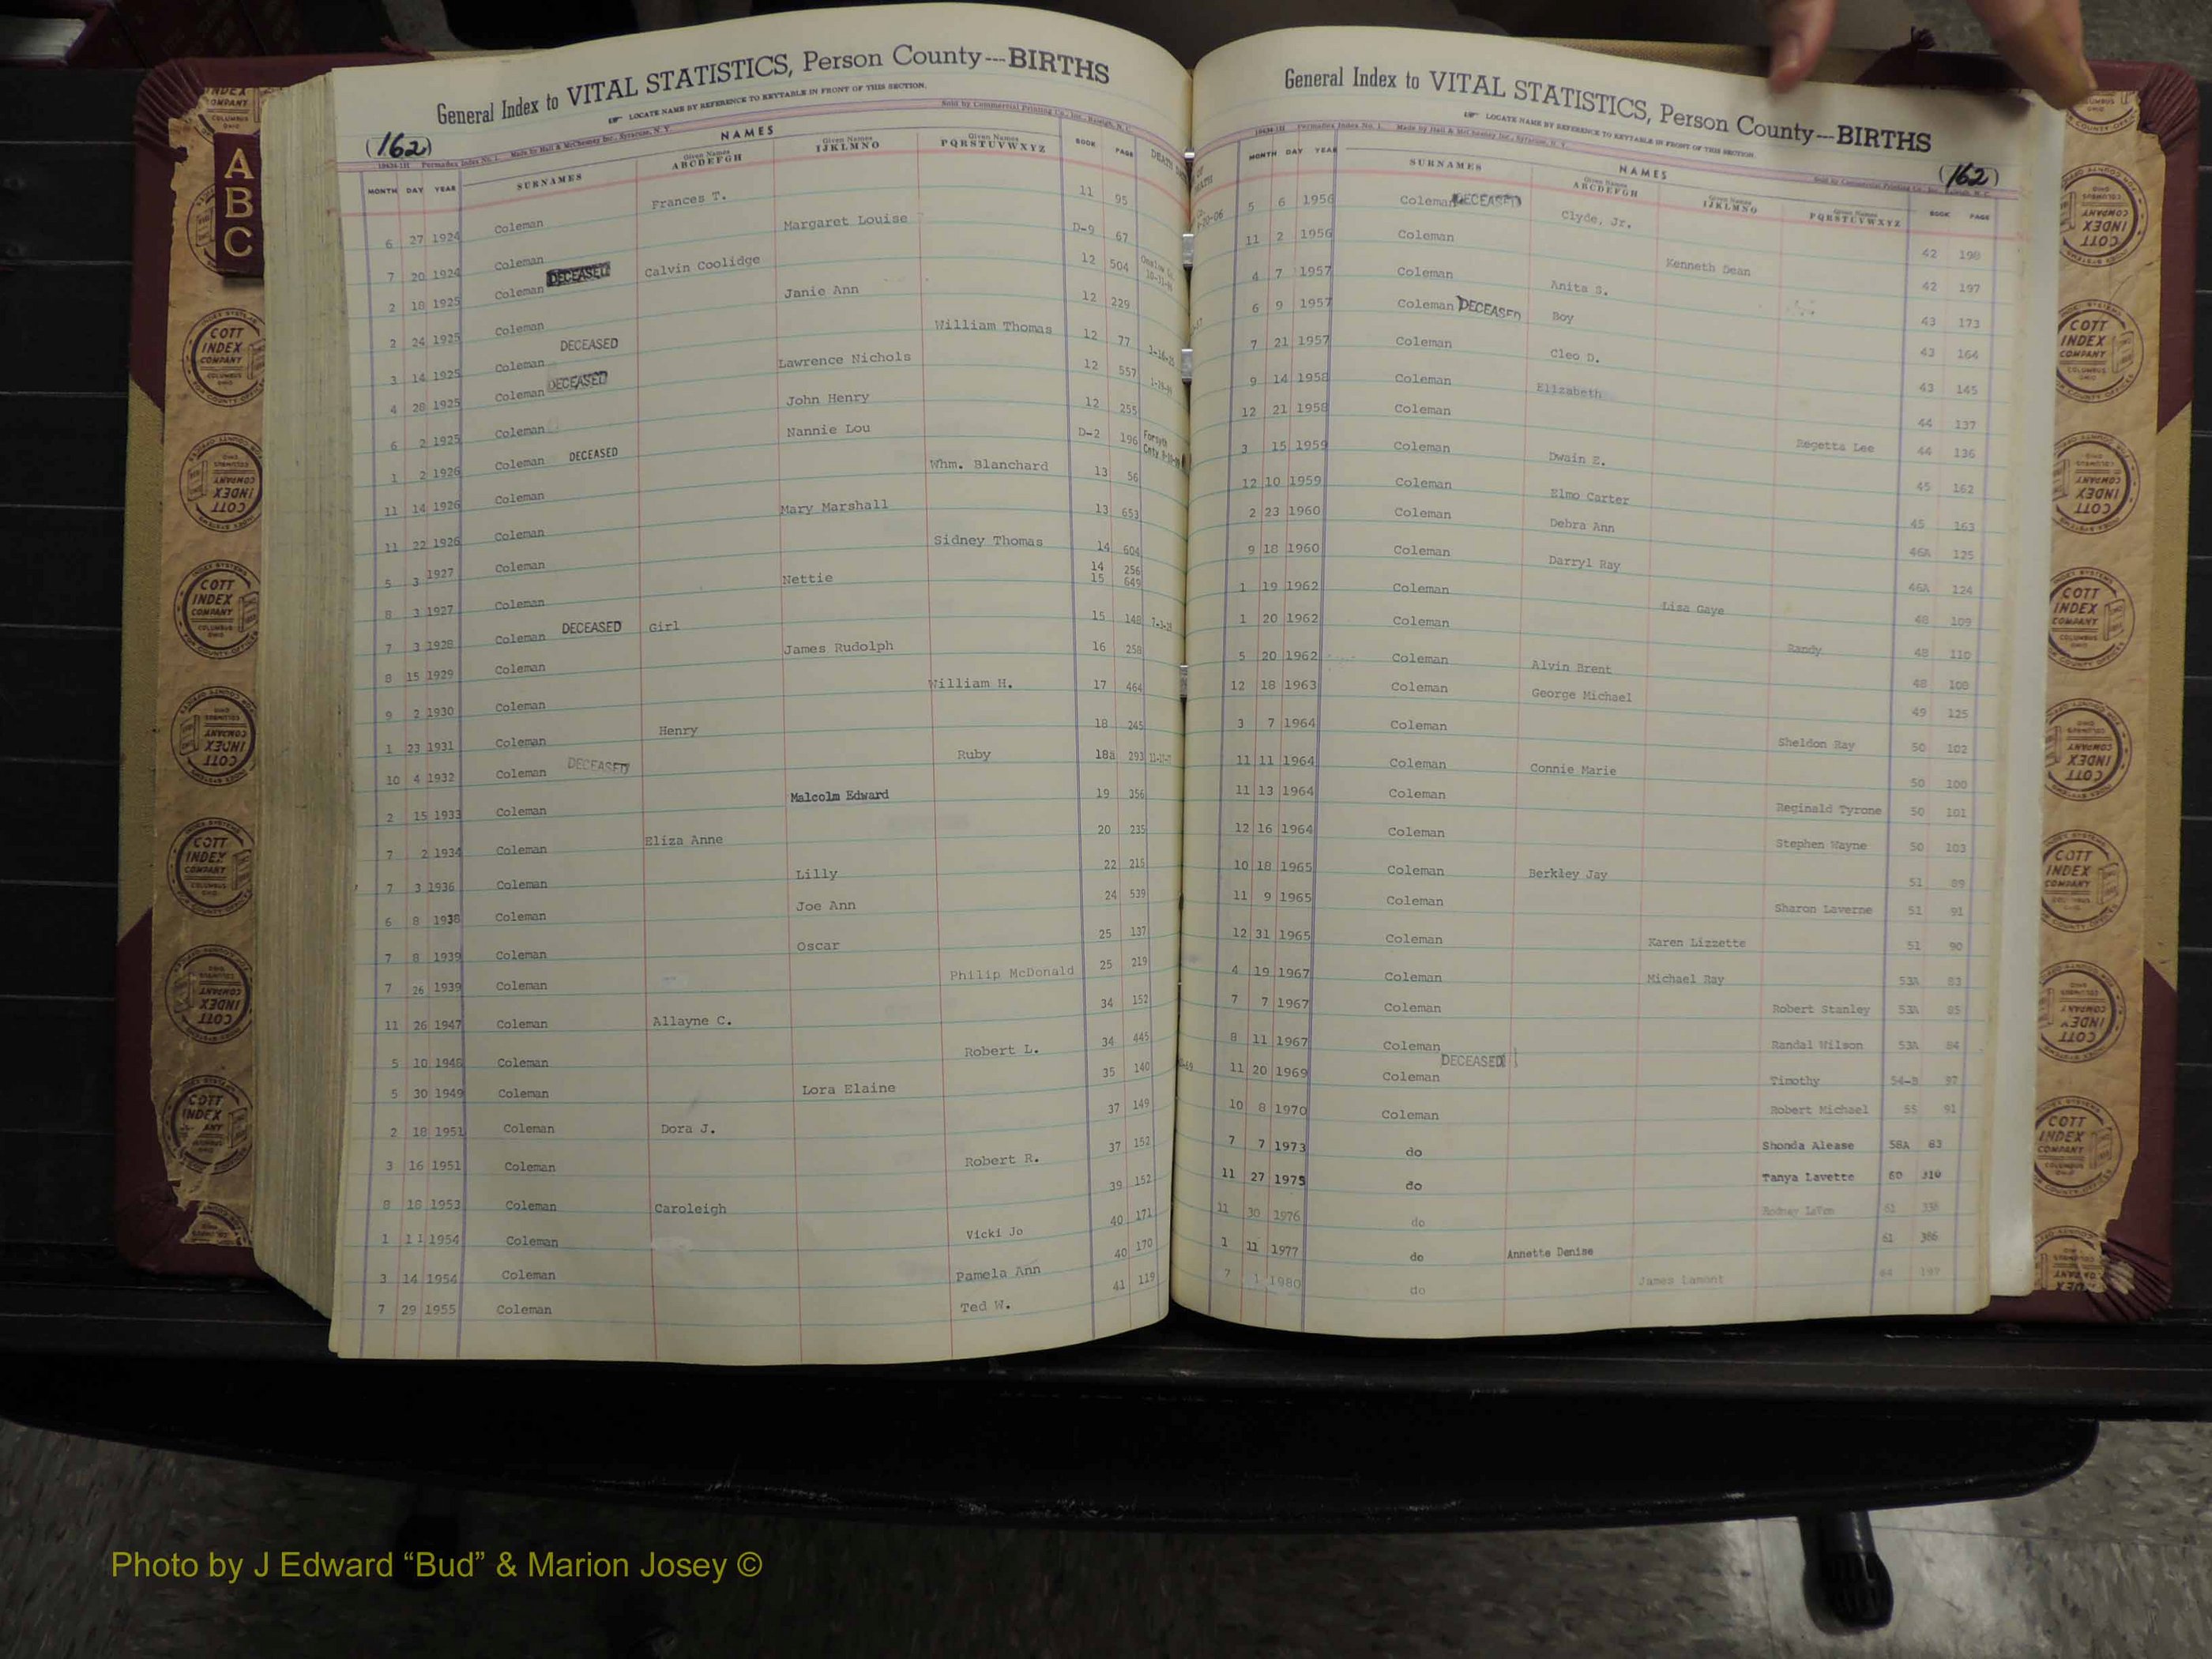 General Index to VITAL STATISTICS, Person County---BIRTHS
LOCATE NAME BY REFERENCE TO KEYTABLE IN FRONT OF THIS SECTION.
(162)
Sold by Commercial Printing Co., Inc., Raleigh, N. C.
Permadex Index No. 1. Made by Hall & McChesney Inc., Syracuse, N. Y.
NAMES
MONTH DAY YEAR SURNAMES Given Names ABCDEFGH Given Names IJKLMNO Given Names PQRSTUVWXYZ BOOK PAGE
6 27 1924 Coleman Frances T. 11 95
7 20 1924 Coleman Margaret Louise D-9 67
2 18 1925 Coleman DECEASED Calvin Coolidge 12 504
2 24 1925 Coleman Janie Ann 12 229
3 14 1925 Coleman DECEASED William Thomas 12 77
4 28 1925 Coleman DECEASED Lawrence Nichols 12 557
6 2 1925 Coleman John Henry 12 255
1 2 1926 Coleman DECEASED Nannie Lou D-2 196 Forsyth
11 14 1926 Coleman Whm. Blanchard 13 56
11 22 1926 Coleman Mary Marshall 13 653
5 3 1927 Coleman Sidney Thomas 14 604
8 3 1927 Coleman Nettie 14 256
15 649
7 3 1928 Coleman DECEASED Girl 15 148
8 15 1929 Coleman James Rudolph 16 258
9 2 1930 Coleman William H. 17 464
1 23 1931 Coleman Henry 18 245
10 4 1932 Coleman DECEASED Ruby 18a 293
2 15 1933 Coleman Malcolm Edward 19 356
7 2 1934 Coleman Eliza Anne 20 235
7 3 1936 Coleman Lilly 22 215
6 8 1938 Coleman Joe Ann 24 539
7 8 1939 Coleman Oscar 25 137
7 26 1939 Coleman Philip McDonald 25 219
11 26 1947 Coleman Allayne C. 34 152
5 10 1948 Coleman Robert L. 34 445
5 30 1949 Coleman Lora Elaine 35 140
2 18 1951 Coleman Dora J. 37 149
3 16 1951 Coleman Robert R. 37 152
8 18 1953 Coleman Caroleigh 39 152
1 11 1954 Coleman Vicki Jo 40 171
3 14 1954 Coleman Pamela Ann 40 170
7 29 1955 Coleman Ted W. 41 119
General Index to VITAL STATISTICS, Person County---BIRTHS
LOCATE NAME BY REFERENCE TO KEYTABLE IN FRONT OF THIS SECTION.
(162)
Permadex Index No. 1. Made by Hall & McChesney Inc., Syracuse, N. Y.
NAMES
MONTH DAY YEAR SURNAMES Given Names ABCDEFGH Given Names IJKLMNO Given Names PQRSTUVWXYZ BOOK PAGE
5 6 1956 Coleman DECEASED Clyde, Jr. 42 198
11 2 1956 Coleman Kenneth Dean 42 197
4 7 1957 Coleman Anita S. 43 173
6 9 1957 Coleman DECEASED Boy 43 164
7 21 1957 Coleman Cleo D. 43 145
9 14 1958 Coleman Elizabeth 44 137
12 21 1958 Coleman Regetta Lee 44 136
3 15 1959 Coleman Dwain E. 45 162
12 10 1959 Coleman Elmo Carter 45 163
2 23 1960 Coleman Debra Ann 46A 125
9 18 1960 Coleman Darryl Ray 46A 124
1 19 1962 Coleman Lisa Gaye 48 109
1 20 1962 Coleman Randy 48 110
5 20 1962 Coleman Alvin Brent 48 108
12 18 1963 Coleman George Michael 49 125
3 7 1964 Coleman Sheldon Ray 50 102
11 11 1964 Coleman Connie Marie 50 100
11 13 1964 Coleman Reginald Tyrone 50 101
12 16 1964 Coleman Stephen Wayne 50 103
10 18 1965 Coleman Berkley Jay 51 89
11 9 1965 Coleman Sharon Laverne 51 91
12 31 1965 Coleman Karen Lizzette 51 90
4 19 1967 Coleman Michael Ray 53A 83
7 7 1967 Coleman Robert Stanley 53A 85
8 11 1967 Coleman Randal Wilson 53A 84
11 20 1969 Coleman DECEASED Timothy 54-B 97
10 8 1970 Coleman Robert Michael 55 91
7 7 1973 do Shonda Alease 58A 83
11 27 1975 do Tanya Lavette 60 310
11 30 1976 do Rodney 61 338
1 11 1977 do Annette Denise 61 386
7 1 1980 do James Lamont 64 197
A
B
C
COTT
INDEX
COMPANY
COLUMBUS
OHIO
Photo by J Edward “Bud” & Marion Josey ©